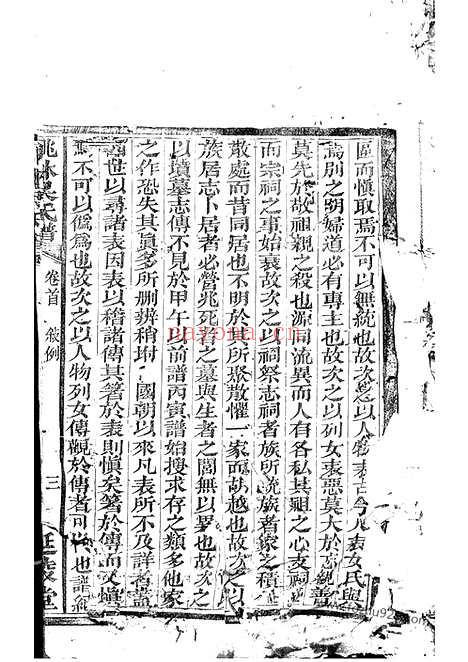 區而慎取焉不可以無統也故次之以人物表古今凡表女氏與
焉別之明婦道必有專主也故次之以列女表惡莫大於志親善
莫先於敬祖親之殺也源同流異而人有各私其祖之心支祠
而宗祠之事始衰故次之以祠祭志祠者族所統族者家之積
散處而昔同居也不明於其所聚散懼一家而胡越也故次之以
族居志卜居者必營兆死者之墓與生者之閭無以異也故次之
以墳墓志傳不見於甲午以前譜丙寅譜始搜求存之類多他家
之作恐失其眞多所刪辨稍坿 國朝以來凡表所不及詳者蓋
世以尋諸表因表以稽諸傳其著於表則愼矣著於傳而又愼
焉不可以僞爲也故次之以人物列女傳觀於傳者可以 也譜
桃林吳氏譜 卷首 敍例 三 延陵堂
nayona.cn